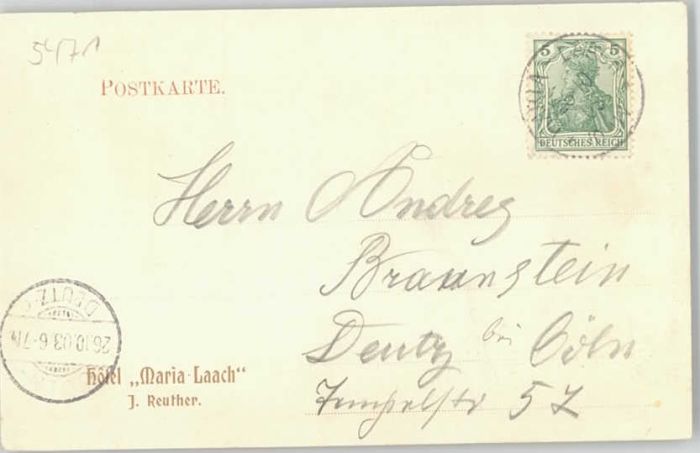 5471
POSTKARTE.
5 5
DEUTSCHES REICH
Herrn Andreas
Braunstein
Deutz bei Cöln
Tempelstr 57
DEUTZ
26.10.03.6-7N
Hôtel „Maria-Laach“
J. Reuther.